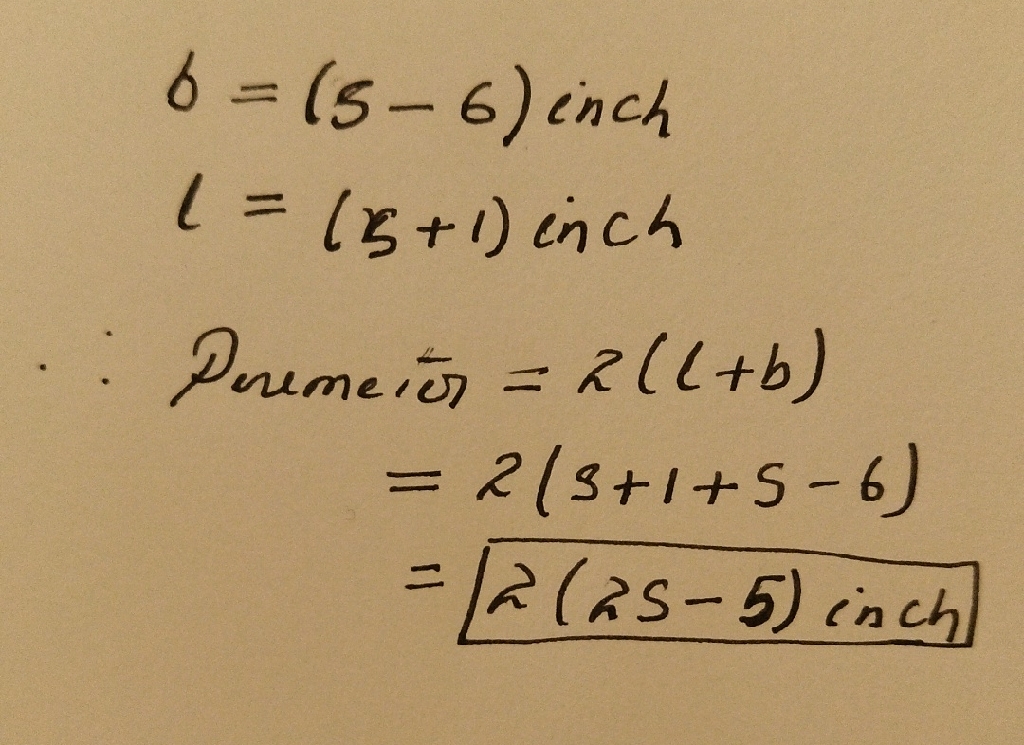 b = (s - 6) inch
l = (s + 1) inch
∴ Peremeter = 2(l + b)
= 2(s + 1 + s - 6)
= 2(2s - 5) inch